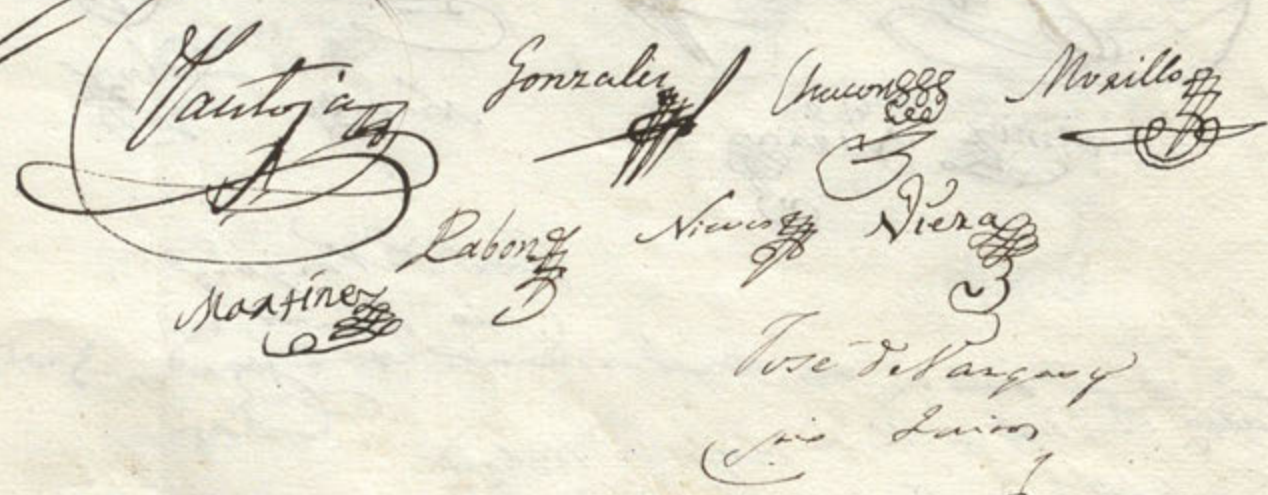 Pantoja Gonzalez Chacon Morillo
Pabon Nieves Viera
Martinez
José de Vargas y